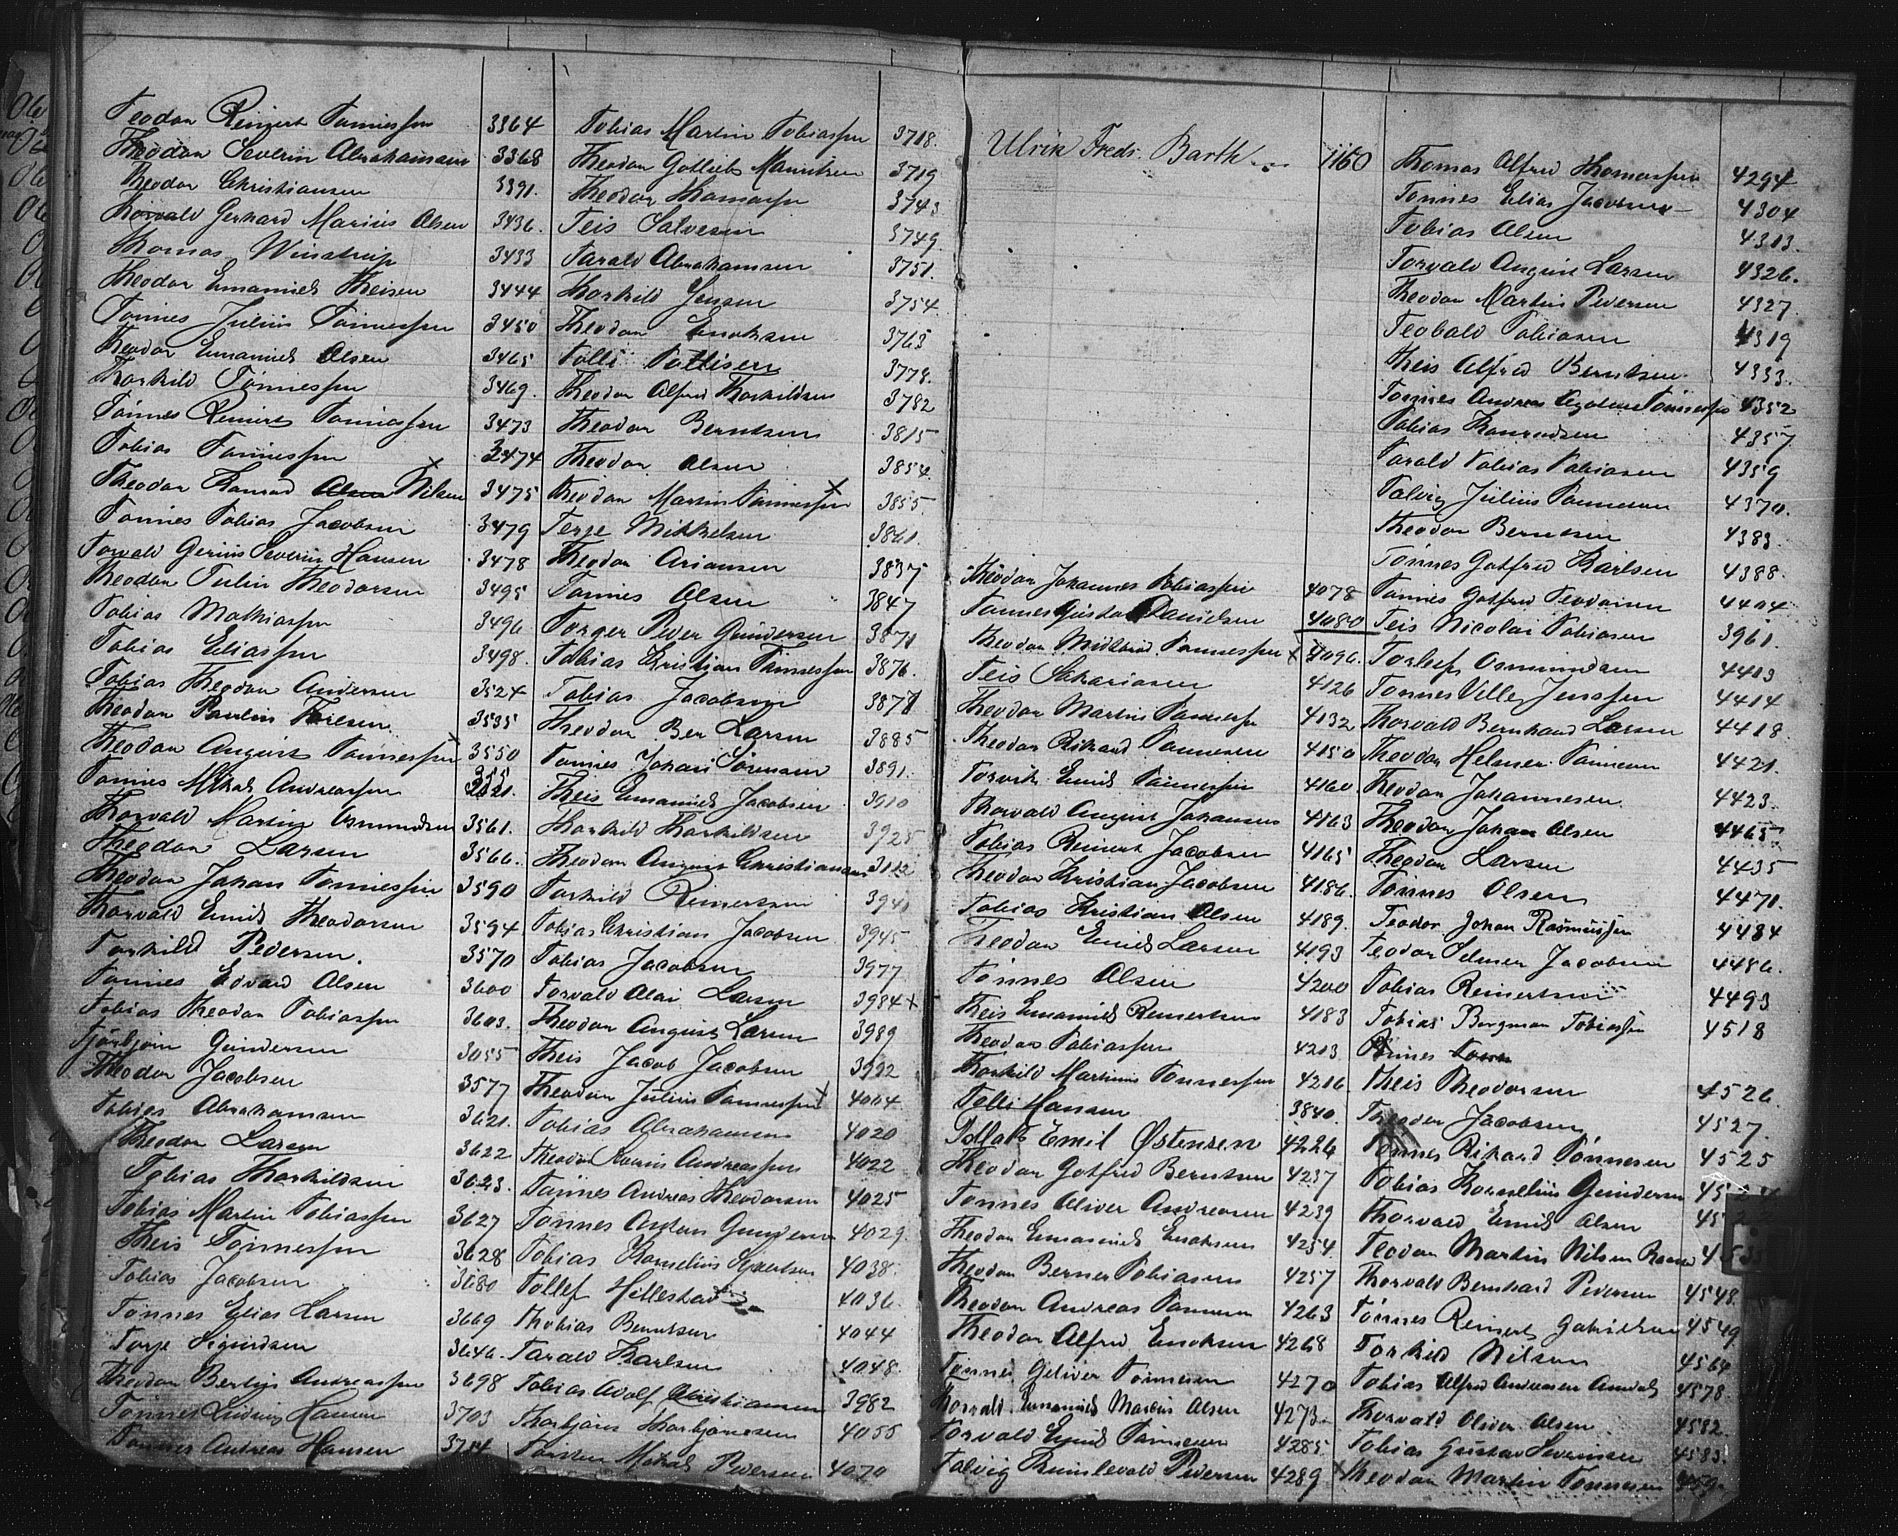 Teodor Reinert Tønnessen 3364
Theodor Severin Abrahamsen 3368
Theodor Christiansen 3391.
Thorvald Gerhard Marius Olsen 3436.
Thomas Winstrup 3433
Theodor Emanuel Theisen 3444
Tønnes Julius Tønnessen 3450
Theodor Emanuel Olsen 3465
Thorkild Tønnessen 3469.
Tønnes Reinert Tønnessen 3473
Tobias Tønnessen 3474
Theodor Konrad Nilsen 3475
Tønnes Tobias Jacobsen 3479
Torvald Gerius Severin Hansen 3478
Theodor Tulin Theodorsen 3495
Tobias Mathiassen 3496
Tobias Eliassen 3498.
Tobias Theodor Andersen 3524
Theodor Paulin 3535
Theodor August Tønnessen 3550
Tønnes Mikal Andreassen
Thorvald Martin Osmundsen 3561.
Theodor Larsen 3566.
Theodor Johan Tønnessen 3590
Thorvald Emil Theodorsen 3594
Torkild Pedersen. 3570
Tønnes Edvard Olsen 3600
Tobias Theodor Tobiassen 3603.
Tjørbjørn Gundersen 3055
Theodor Jacobsen 3577
Tobias Abrahamsen 3621.
Theodor Larsen 3622
Tobias Thorkildsen 3623.
Tobias Martin Tobiassen 3627
Theis Tønnessen 3628
Tobias Jacobsen 3680
Tønnes Elias Larsen 3669
Torje Sigurdsen 3646.
Theodor Bertin Andreassen 3698
Tønnes Ludvig Hansen 3703
Tønnes Andreas Hansen 3714
Tobias Martin Tobiassen 3718.
Theodor Gotlieb Mauritsen 3719
Theodor Thomassen 3743
Teis Salvesen 3749.
Tarald Abrahamsen 3751.
Thorkild Jensen 3754
Theodor Enoksen 3763
Tolli Tollisen 3778.
Theodor Alfred Thorkildsen 3782
Theodor Berntsen 3815
Theodor Olsen 3854.
Theodor Martin Tønnessen 3855
Terje Mikkelsen 3861.
Theodor Ariansen 3837
Tønnes Olsen 3847
Torger Peder Gundersen 3871
Tobias Kristian Tønnessen 3876.
Tobias Jacobsen 3877
Theodor Ber Larsen 3885
Tønnes Johan Sørensen 3891.
Theis Emanuel Jacobsen 3910
Thorkild Thorkildsen 3925
Theodor August Christiansen 3112
Torkild Reinertsen
Tobias Christian Jacobsen 3945
Tobias Jacobsen 3977
Torvald Olai Larsen 3984 x
Theodor August Larsen 3989
Theis Jacob Jacobsen 3992
Theodor Julius Tønnessen 4004
Tobias Abrahamsen 4020
Theodor Andreassen 4022
Tønnes Andreas Theodorsen 4025
Tønnes Anton Gundersen 4029.
Tobias Kornelius 4038.
Tollef Hillestad 4036.
Thobias Berntsen 4044
Tarald Karlsen 4048.
Tobias Adolf Christiansen 3982
Thorbjørn Thorbjørnsen 4055
Torsten Mikal Pedersen 4070
Ulrik Fredr. Barth 1160
Theodor Johannes Tobiassen 4078
Tønnes Gustav Danielsen 4080
Theodor Tønnessen x 4096.
Teis Sakariasen 4126
Theodor Martin Tønnessen 4132
Theodor Rikard Tønnesen 4150
Torvik Emil Tønnessen 4160.
Thorvald August Johansen 4163
Tobias Reinert Jacobsen 4165
Theodor Kristian Jacobsen 4186.
Tobias Kristian Olsen 4189.
Theodor Emil Larsen 4193
Tønnes Olsen 4200
Theis Emanuel Reinertsen 4183
Theodor Tobiassen 4213
Thorkild Martinius Tønnessen 4216
Tolli Hansen 3840.
Tollak Emil Østensen 4226
Theodor Gotfred Berntsen 4237
Tønnes Oliver Andreasen 4239
Theodor Emanuel Enoksen 4254.
Theodor Berner Tobiasen 4257
Theodor Andreas Tønnesen 4263
Theodor Alfred Enoksen 4268
Tønnes Tønnesen 4270
Thorvald Emanuel Marius Olsen 4273.
Torvald Emil Tønnesen 4285
Talvig Pedersen 4289
Thomas Alfred Thomassen 4294
Tønnes Elias Jacobsen 4304
Tobias Olsen 4313.
Torvald August Larsen 4326.
Theodor Martin Pedersen 4327
Teobald Tobiasen 4319
Theis Alfred Berntsen 4333.
Tønnes Andreas Tønnessen 4352
Tobias Konradsen 4357
Tarald Tobias Tobiasen 4359
Talvig Julius Tønnesen 4370.
Theodor Berntsen 4383.
Tønnes Gotfred Karlsen 4388.
Tønnes Gotfred Teodorsen 4404
Teis Nicolai Tobiasen 3961
Torleif Osmundsen 4413
Tønnes Ville Jenssen 4414
Thorvald Bernhard Larsen 4418.
Theodor Helmer Tønnesen 4421.
Theodor Johannesen 4423.
Theodor Johan Olsen 4465
Theodor Larsen 4435
Tønnes Olsen 4471.
Teodor Johan Rasmussen 4484
Teodor Selmer Jacobsen 4486.
Tobias Reinertsen 4493
Tobias Bergman Tobiassen 4518
Tønnes
Theis Theodorsen 4526
Theodor Jacobsen 4527.
Tønnes Rikard Tønnesen 4525
Tobias Kornelius Gundersen
Thorvald Emil Olsen
Teodor Martin Nilsen
Thorvald Bernhard Pedersen 4548.
Tønnes Reinert Gabrielsen 4549
Torkild Nilsen 4564
Tobias Alfred Andreasen 4578
Thorvald Oliver Olsen 4582.
Tobias Gustav Severinsen 4583.
Theodor Martin Tønnesen